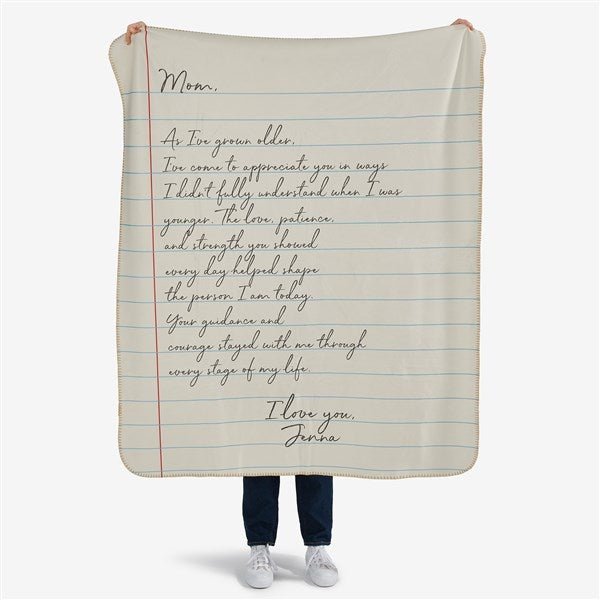 Mom,
As I've grown older,
I've come to appreciate you in ways
I didn't fully understand when I was
younger. The love, patience,
and strength you showed
every day helped shape
the person I am today.
Your guidance and
courage stayed with me through
every stage of my life.
I love you,
Jenna